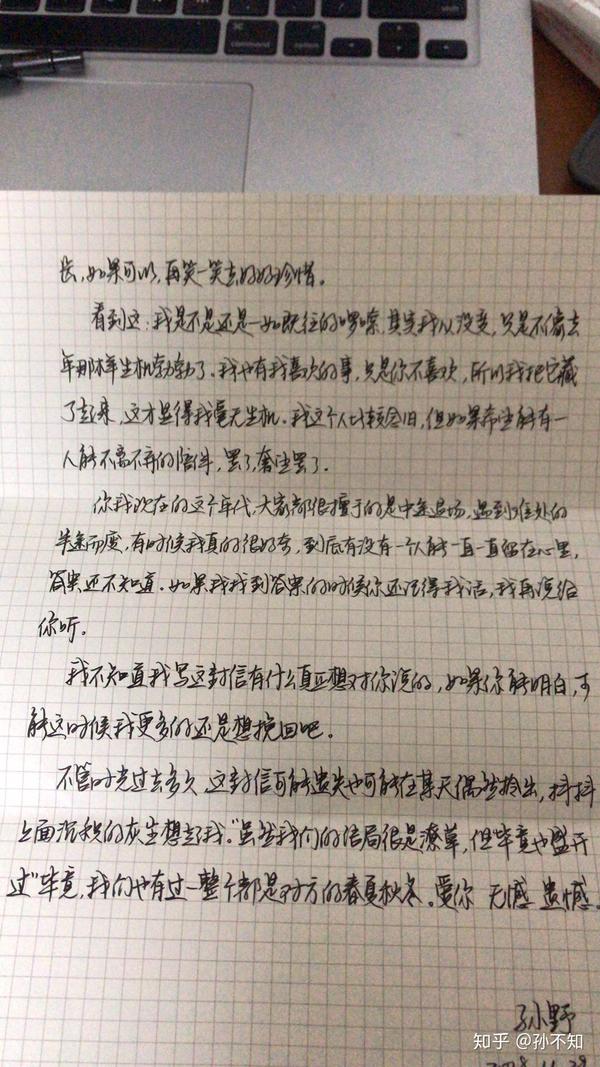 control
option
command
长,如果可以,再笑一笑去好好珍惜。
看到这,我是不是还是一如既往的啰嗦,其实我从没变,只是不像去
年那样生机勃勃了。我也有我喜欢的事,只是你不喜欢,所以我把它藏
了起来,这才显得我毫无生机。我这个人比较念旧,但如果希望能有一
人能不离不弃的陪伴,罢了,奢望罢了。
你我现在的这个年代,大家都很擅于的是中途退场,遇到难处的
半途而废,有时候我真的很好奇,到底有没有一个人能一直一直留在心里,
答案还不知道。如果我找到答案的时候你还记得我话,我再说给
你听。
我不知道我写这封信有什么真正想对你说的,如果你能明白,可
能这时候我更多的还是想挽回吧。
不管时光过去多久,这封信可能遗失也可能在某天偶然拾出,抖抖
上面沉积的灰尘想起了我。"虽然我们的结局很是潦草,但毕竟也盛开
过"毕竟,我们也有过一整个都是对方的春夏秋冬。爱你 无憾 遗憾。
孙野
知乎 @孙不知